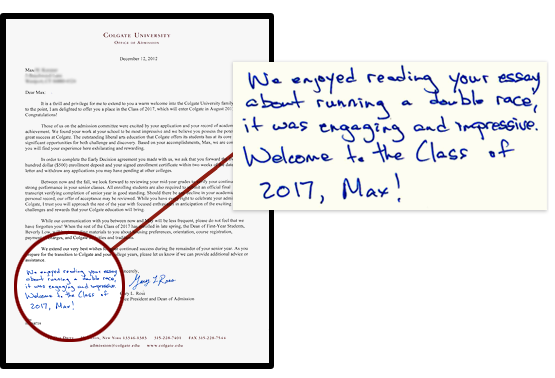 COLGATE UNIVERSITY
OFFICE OF ADMISSION
December 12, 2012
Max
Dear Max:
It is a thrill and privilege for me to extend to you a warm welcome into the Colgate University family
to the point, I am delighted to offer you a place in the Class of 2017, which will enter Colgate in August 201
Congratulations!
Those of us on the admission committee were excited by your application and your record of academ
achievement. We found your work at your school to be most impressive and we believe you possess the pote
great success at Colgate. The outstanding liberal arts education that Colgate offers students has at its core
significant opportunities for both challenge and discovery. Based on your accomplishments, Max, we are con
you will find your experience here exhilarating and rewarding.
In order to complete the Early Decision agreement you made with us, we ask that you forward the
hundred dollar ($500) enrollment deposit and your signed enrollment certificate within two weeks of the date
letter and withdraw any applications you may have pending at other colleges.
Between now and the fall, we look forward to reviewing your mid-year grades to verify your continued
strong performance in your senior classes. All enrolling students are also required to submit an official final
transcript verifying completion of senior year in good standing. Should there be a decline in your academic
personal record, our offer of acceptance may be reviewed. While you have every right to celebrate your admission
Colgate, I trust you will approach the rest of the year with focused enthusiasm in anticipation of the exciting
challenges and rewards that your Colgate education will bring.
While our communication with you between now and May will be less frequent, please do not feel that we
have forgotten you! When the rest of the Class of 2017 has enrolled in late spring, the Dean of First-Year Students,
Beverly Low, will be sending materials to you about housing preferences, orientation, course registration,
payment charges, and Colgate activities and traditions.
We extend our very best wishes for continued success during the remainder of your senior year. As you
prepare for the transition to Colgate and your college years, please let us know if we can provide additional advice or
assistance.
Sincerely,
Gary L. Ross
Gary L. Ross
Vice President and Dean of Admission
We enjoyed reading your essay
about running a double race,
it was engaging and impressive.
Welcome to the Class of
2017, Max!
New York 13346-1383 315-228-7401 FAX 315-228-7544
admission@colgate.edu www.colgate.edu
We enjoyed reading your essay
about running a double race,
it was engaging and impressive.
Welcome to the Class of
2017, Max!